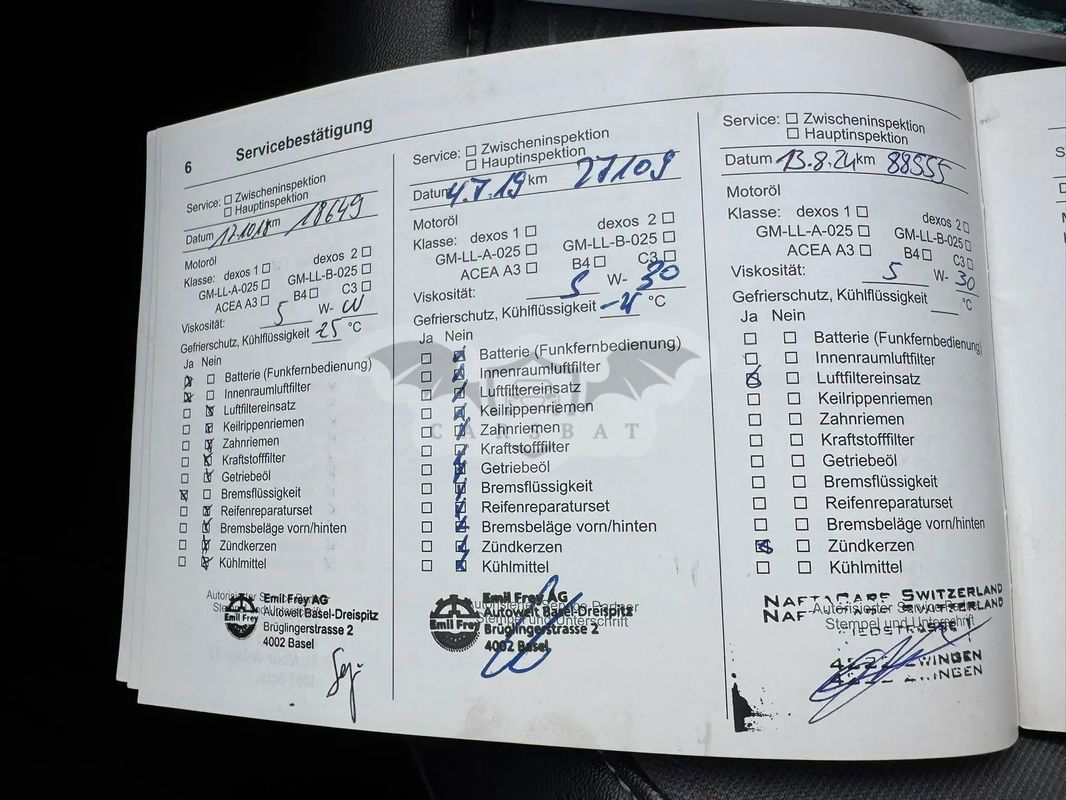 6 Servicebestätigung
Service: ☐ Zwischeninspektion
☐ Hauptinspektion
Datum 17.10.18 km 18649
Motoröl
Klasse: dexos 1 ☐ dexos 2 ☐
GM-LL-A-025 ☐ GM-LL-B-025 ☐
ACEA A3 ☐ B4 ☐ C3 ☐
Viskosität: 5 W-
Gefrierschutz, Kühlflüssigkeit -25 °C
Ja Nein
Batterie (Funkfernbedienung)
Innenraumluftfilter
Luftfiltereinsatz
Keilrippenriemen
Zahnriemen
Kraftstofffilter
Getriebeöl
Bremsflüssigkeit
Reifenreparaturset
Bremsbeläge vorn/hinten
Zündkerzen
Kühlmittel
Autorisierter Service Partner
Stempel und Unterschrift
Emil Frey
Emil Frey AG
Autowelt Basel-Dreispitz
Brüglingerstrasse 2
4002 Basel
Service: ☐ Zwischeninspektion
☐ Hauptinspektion
Datum 4.7.19 km 27109
Motoröl
Klasse: dexos 1 ☐ dexos 2 ☐
GM-LL-A-025 ☐ GM-LL-B-025 ☐
ACEA A3 ☐ B4 ☐ C3 ☐
Viskosität: 5 W- 30
Gefrierschutz, Kühlflüssigkeit °C
Ja Nein
Batterie (Funkfernbedienung)
Innenraumluftfilter
Luftfiltereinsatz
Keilrippenriemen
Zahnriemen
Kraftstofffilter
Getriebeöl
Bremsflüssigkeit
Reifenreparaturset
Bremsbeläge vorn/hinten
Zündkerzen
Kühlmittel
Autorisierter Service Partner
Stempel und Unterschrift
Emil Frey
Emil Frey AG
Autowelt Basel-Dreispitz
Brüglingerstrasse 2
4002 Basel
Service: ☐ Zwischeninspektion
☐ Hauptinspektion
Datum 13.8.24 km 88555
Motoröl
Klasse: dexos 1 ☐ dexos 2 ☐
GM-LL-A-025 ☐ GM-LL-B-025 ☐
ACEA A3 ☐ B4 ☐ C3 ☐
Viskosität: 5 W- 30
Gefrierschutz, Kühlflüssigkeit °C
Ja Nein
Batterie (Funkfernbedienung)
Innenraumluftfilter
Luftfiltereinsatz
Keilrippenriemen
Zahnriemen
Kraftstofffilter
Getriebeöl
Bremsflüssigkeit
Reifenreparaturset
Bremsbeläge vorn/hinten
Zündkerzen
Kühlmittel
Autorisierter Service Partner
Stempel und Unterschrift
SWITZERLAND
CARSBAT